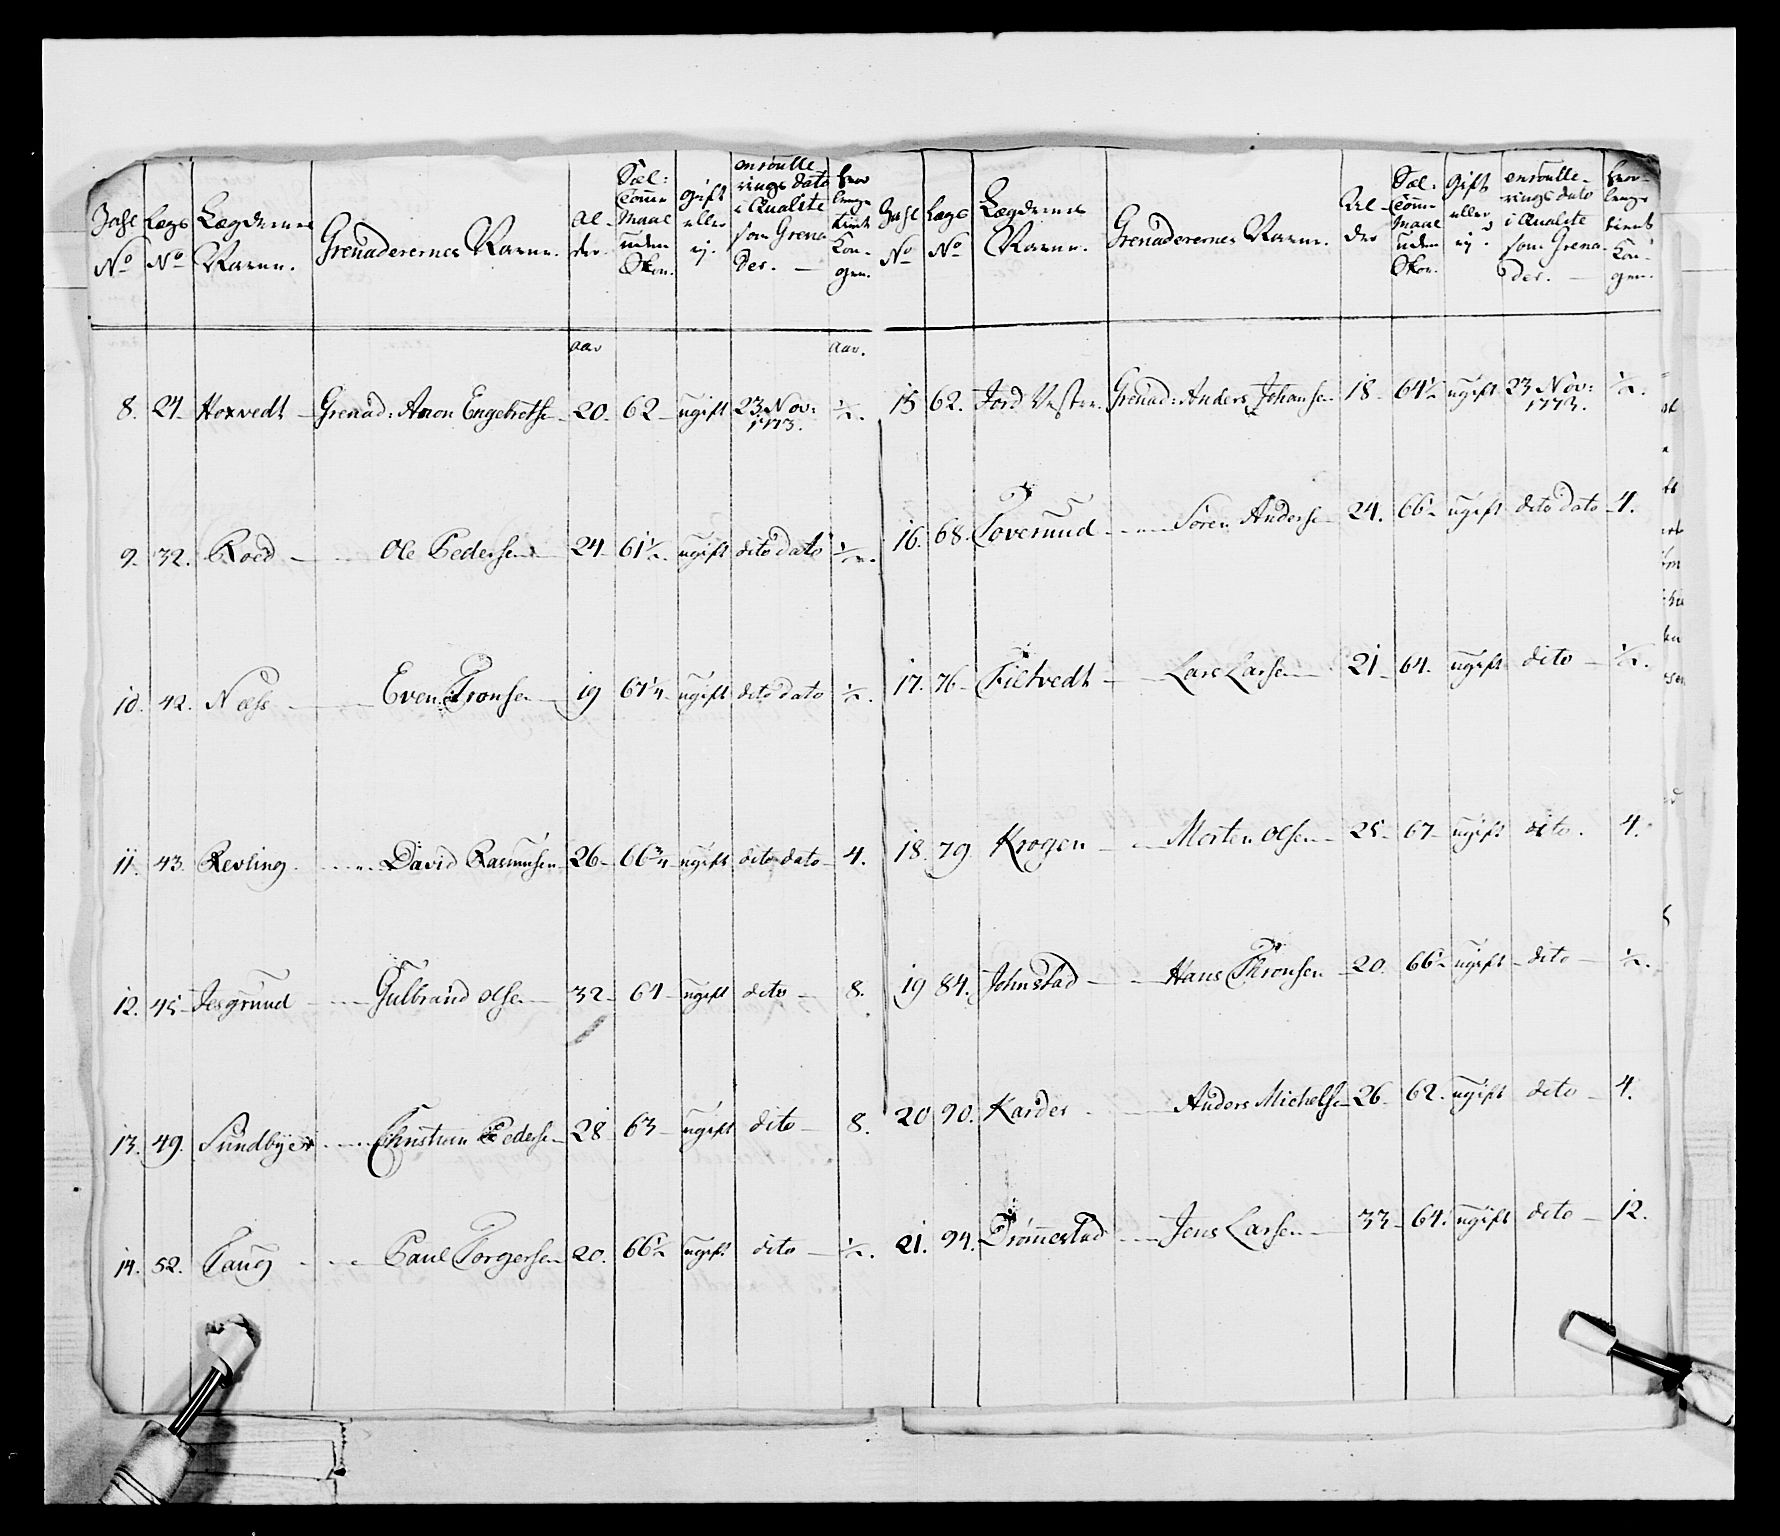 Tahl No | Lægs No | Lægdernes Navne. | Grenaderernes Navne. | Al- der. | Sæl: Tomme Maal uden Skoe. | gift eller ej. | enroulle- rings dato i Qualite som Grena- der. | hvor længe tient Kon- gen.
aar | aar.
8. | 24. | Hoxvedt | Grenad: Amon Engebretsen | 20. | 62 | ugift | 23 Nov: 1773. | 1/2.
9. | 32. | Roed | Ole Pedersen | 24 | 61 1/2 | ugift | dito dato | 1/2.
10. | 42. | Næss | Even Tronsen | 19 | 61 1/4 | ugift | dito dato | 1/2.
11. | 43. | Revling | David Rasmusen | 26 | 66 3/4 | ugift | dito dato | 4.
12. | 45 | Jesgrund | Gulbrand Olsen | 32 | 64 | ugift | dito | 8.
13. | 49. | Sundbye | Christian Pedersen | 28 | 63 | ugift | dito | 8.
14. | 52. | Taug | Paul Torgersen | 20. | 66 1/2 | ugift | dito | 1/2.
Tahl No | Lægs No | Lægdernes Navne. | Grenaderernes Navne. | Al- der | Sæl: Tomme Maal uden Skoe. | gift eller ej. | enroulle- rings dato i Qualite som Grena- der. | hvor- længe tient Kon- gen.
15 | 62. | Jord Vestre | Grenad: Anders Johansen | 18 | 64 1/2 | ugift | 23 Nov: 1773. | 1/2.
16. | 68. | Toverund | Sören Andersen | 24. | 66 1/2 | ugift | dito dato | 4.
17. | 76 | Fietvedt | Lars Larsen | 21 | 64. | ugift | dito | 1/2.
18. | 79 | Krogen | Morten Olsen | 25 | 67 | ugift | dito. | 4.
19 | 84. | Johnstad | Hans Thronsen | 20. | 66 1/2 | ugift | dito | 1/2.
20 | 90. | Karder | Anders Michelsen | 26 | 62. | ugift | dito | 4.
21. | 94. | Drömestad | Jens Larsen | 33 | 64. | ugift | dito | 12.